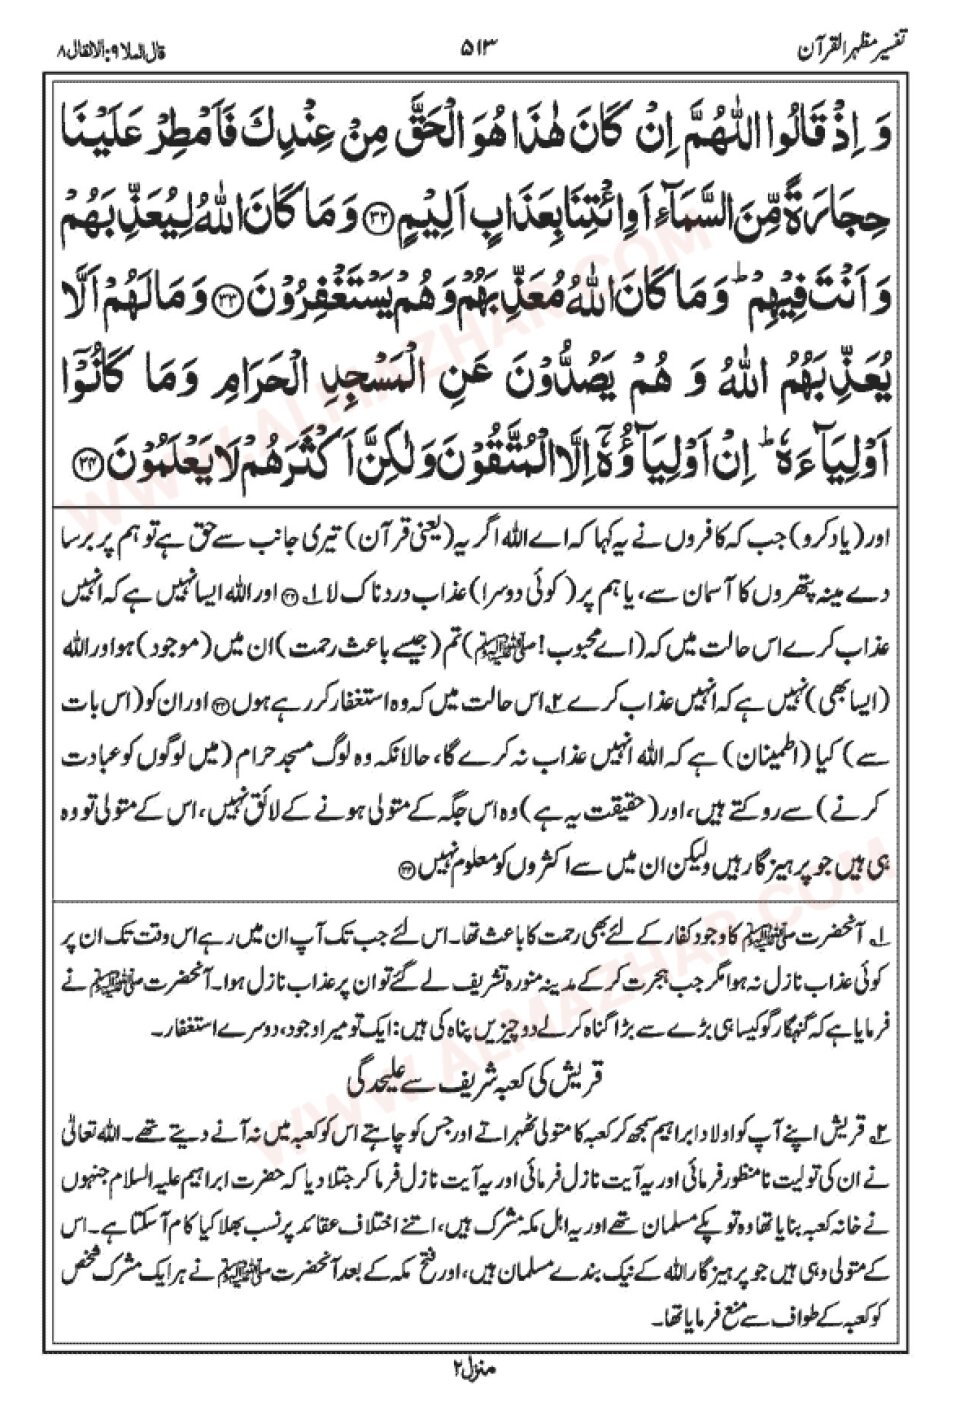 تفسیر مظہر القرآن
۵۱۳
قال الملا ۹: الانفال ۸
وَ اِذْ قَالُوا اللّٰهُمَّ اِنْ كَانَ هٰذَا هُوَ الْحَقَّ مِنْ عِنْدِكَ فَاَمْطِرْ عَلَيْنَا
حِجَارَةً مِّنَ السَّمَآءِ اَوِ ائْتِنَا بِعَذَابٍ اَلِيْمٍ ﴿۳۲﴾ وَ مَا كَانَ اللّٰهُ لِيُعَذِّبَهُمْ
وَ اَنْتَ فِيْهِمْ ؕ وَ مَا كَانَ اللّٰهُ مُعَذِّبَهُمْ وَ هُمْ يَسْتَغْفِرُوْنَ ﴿۳۳﴾ وَ مَا لَهُمْ اَلَّا
يُعَذِّبَهُمُ اللّٰهُ وَ هُمْ يَصُدُّوْنَ عَنِ الْمَسْجِدِ الْحَرَامِ وَ مَا كَانُوْۤا
اَوْلِيَآءَهٗ ؕ اِنْ اَوْلِيَآؤُهٗۤ اِلَّا الْمُتَّقُوْنَ وَ لٰكِنَّ اَكْثَرَهُمْ لَا يَعْلَمُوْنَ ﴿۳۴﴾
اور (یاد کرو) جب کہ کافروں نے یہ کہا کہ اے اللہ اگر یہ (یعنی قرآن) تیری جانب سے حق ہے تو ہم پر برسا
دے مینہ پتھروں کا آسمان سے، یا ہم پر (کوئی دوسرا) عذاب دردناک لا ۱؎ ﴿۳۲﴾ اور اللہ ایسا نہیں ہے کہ انہیں
عذاب کرے اس حالت میں کہ (اے محبوب! ﷺ) تم (جیسے باعث رحمت) ان میں (موجود) ہو اور اللہ
(ایسا بھی) نہیں ہے کہ انہیں عذاب کرے ۲؎ اس حالت میں کہ وہ استغفار کر رہے ہوں ﴿۳۳﴾ اور ان کو (اس بات
سے) کیا (اطمینان) ہے کہ اللہ انہیں عذاب نہ کرے گا، حالانکہ وہ لوگ مسجد حرام (میں لوگوں کو عبادت
کرنے) سے روکتے ہیں، اور (حقیقت یہ ہے) وہ اس جگہ کے متولی ہونے کے لائق نہیں، اس کے متولی تو وہ
ہی ہیں جو پرہیز گار ہیں ولیکن ان میں سے اکثروں کو معلوم نہیں ﴿۳۴﴾
۱؎ آنحضرت ﷺ کا وجود کفار کے لئے بھی رحمت کا باعث تھا۔ اس لئے جب تک آپ ان میں رہے اس وقت تک ان پر
کوئی عذاب نازل نہ ہوا مگر جب ہجرت کر کے مدینہ منورہ تشریف لے گئے تو ان پر عذاب نازل ہوا۔ آنحضرت ﷺ نے
فرمایا ہے کہ گنہگار گو کیسا ہی بڑے سے بڑا گناہ کر لے دو چیزیں پناہ کی ہیں: ایک تو میرا وجود، دوسرے استغفار۔
قریش کی کعبہ شریف سے علیحدگی
۲؎ قریش اپنے آپ کو اولاد ابراہیم سمجھ کر کعبہ کا متولی ٹھہراتے اور جس کو چاہتے اس کو کعبہ میں نہ آنے دیتے تھے۔ اللہ تعالیٰ
نے ان کی تولیت نامنظور فرمائی اور یہ آیت نازل فرمائی اور یہ آیت نازل فرما کر جتلا دیا کہ حضرت ابراہیم علیہ السلام جنہوں
نے خانہ کعبہ بنایا تھا وہ تو پکے مسلمان تھے اور یہ اہل مکہ مشرک ہیں، اتنے اختلاف عقائد پر نسب بھلا کیا کام آ سکتا ہے۔ اس
کے متولی وہی ہیں جو پرہیز گار اللہ کے نیک بندے مسلمان ہیں، اور فتح مکہ کے بعد آنحضرت ﷺ نے ہر ایک مشرک شخص
کو کعبہ کے طواف سے منع فرمایا تھا۔
منزل ۲
WWW.ALMAZHAR.COM
WWW.ALMAZHAR.COM